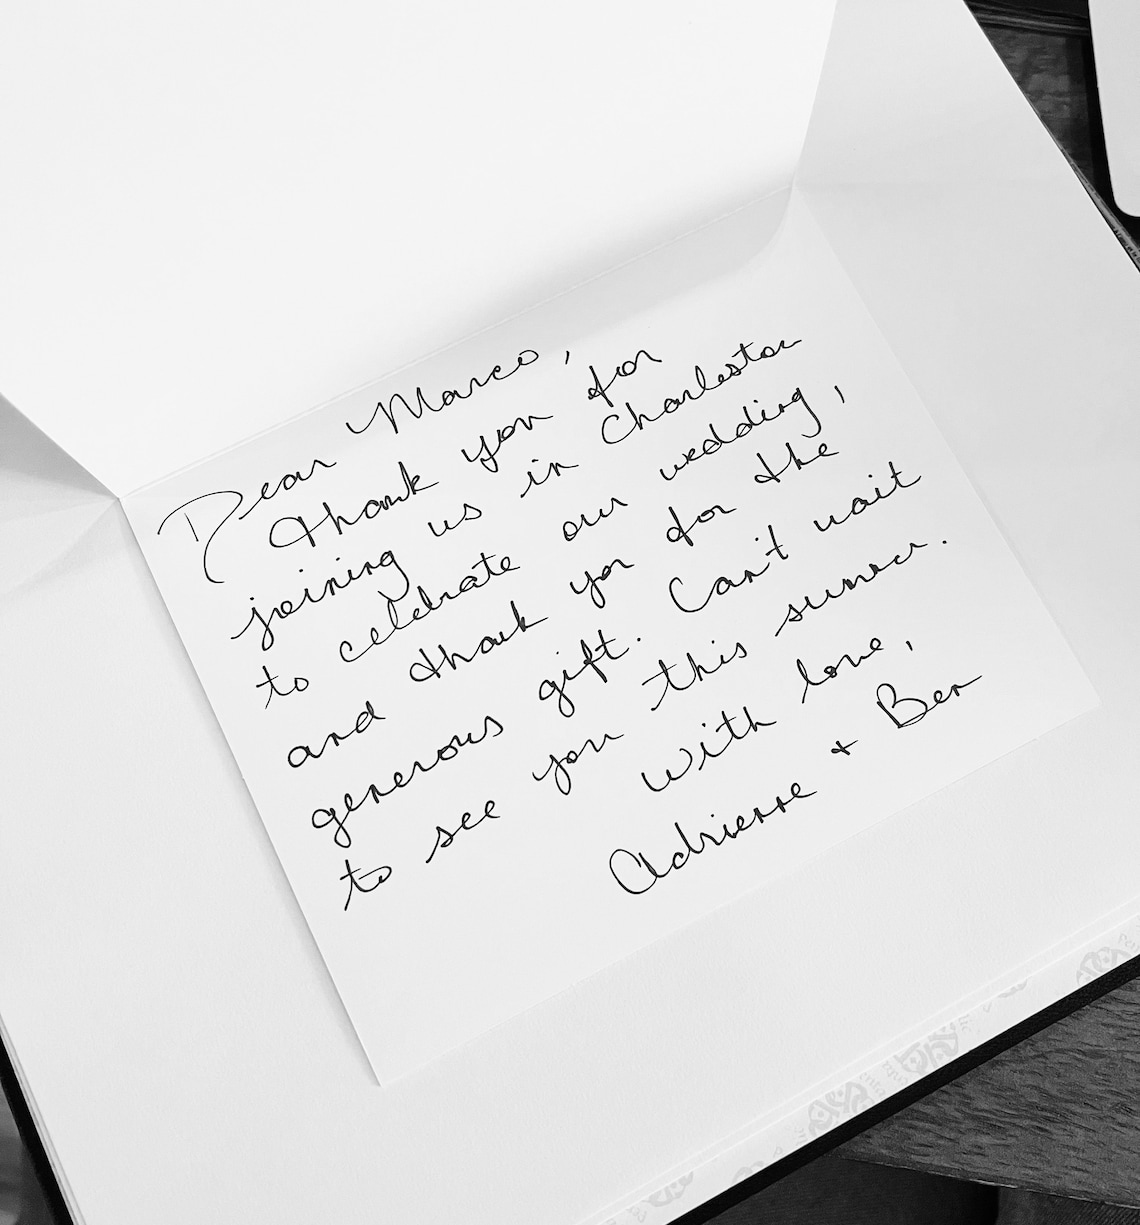 Dear Marco,
thank you for
joining us in Charleston
to celebrate our wedding,
and thank you for the
generous gift. Can't wait
to see you this summer.
with love,
Adrienne + Ben